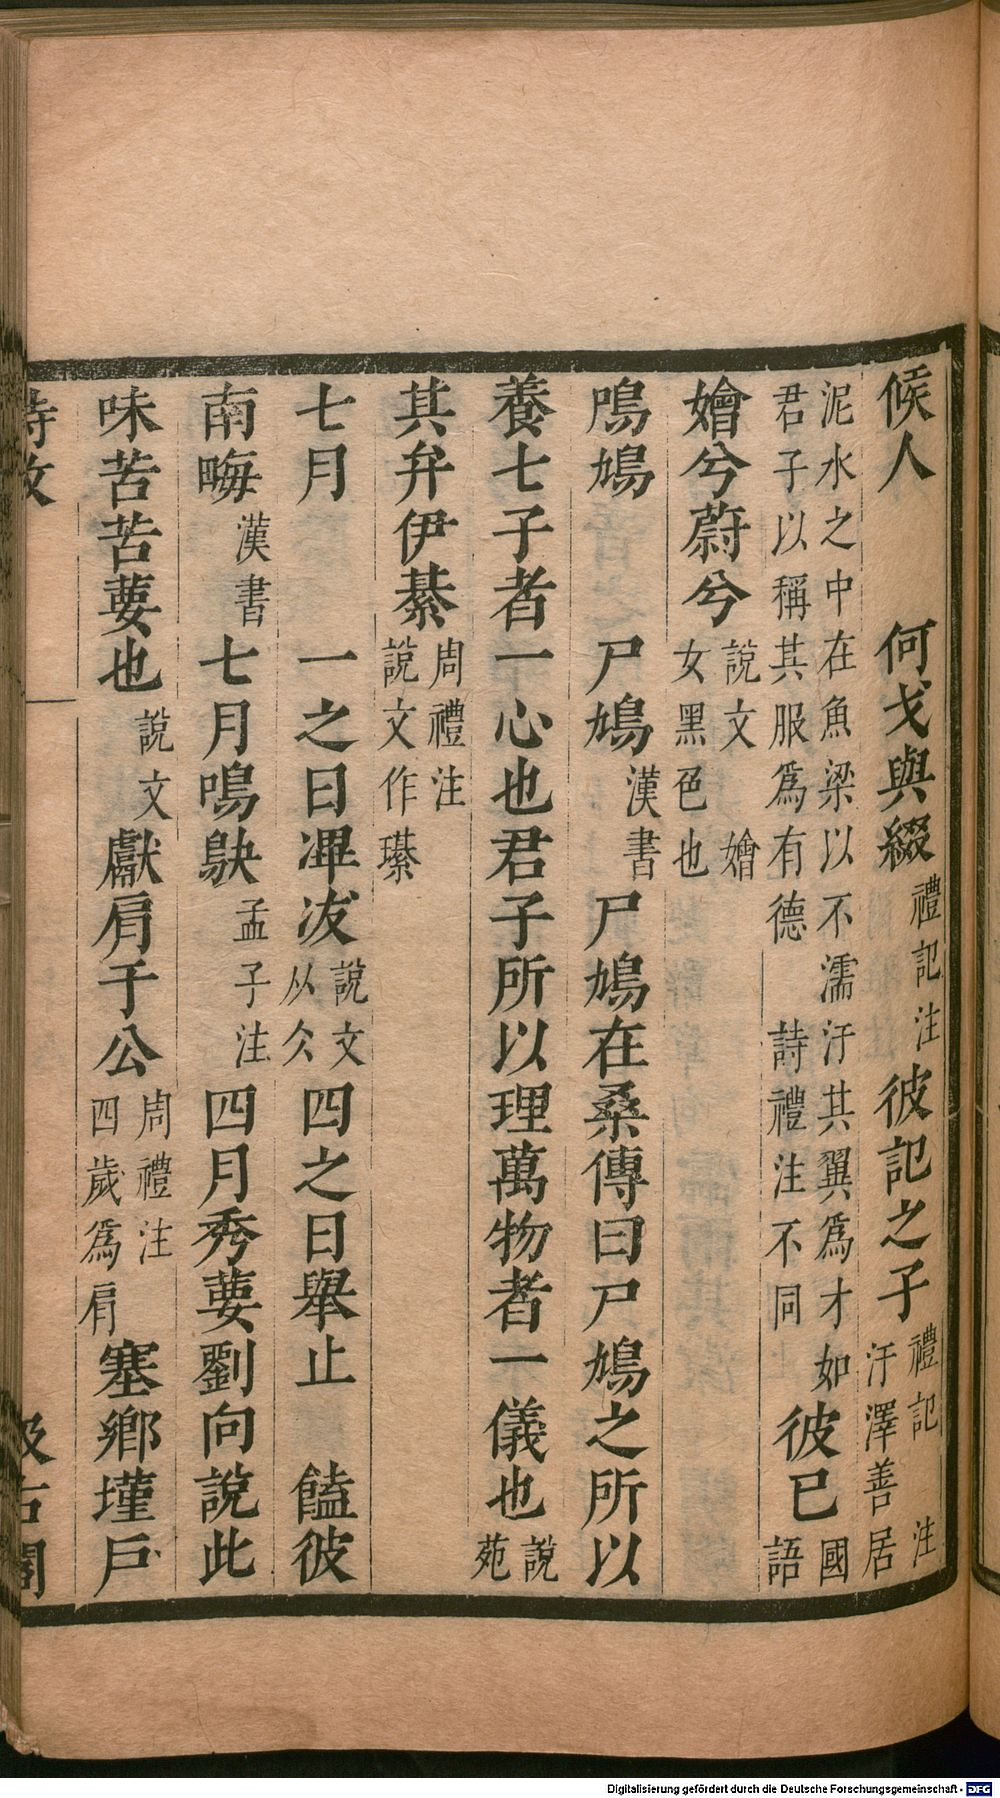 候人　何戈與綴禮記注彼記之子禮記注汙澤善居
泥水之中在魚梁以不濡汙其翼爲才如君子以稱其服爲有德　詩禮注不同彼已國語
嬒兮蔚兮說文　嬒女黑色也
鳲鳩　尸鳩漢書尸鳩在桑傳曰尸鳩之所以
養七子者一心也君子所以理萬物者一儀也說苑
其弁伊綦周禮注說文作璂
七月　一之日滭冹說文从仌四之日舉止　饁彼
南畮漢書七月鳴鴃孟子注四月秀葽劉向說此
味苦苦葽也說文獻肩于公周禮注四歲爲肩塞鄉墐戶
詩攷　汲古閣
Digitalisierung gefördert durch die Deutsche Forschungsgemeinschaft - DFG